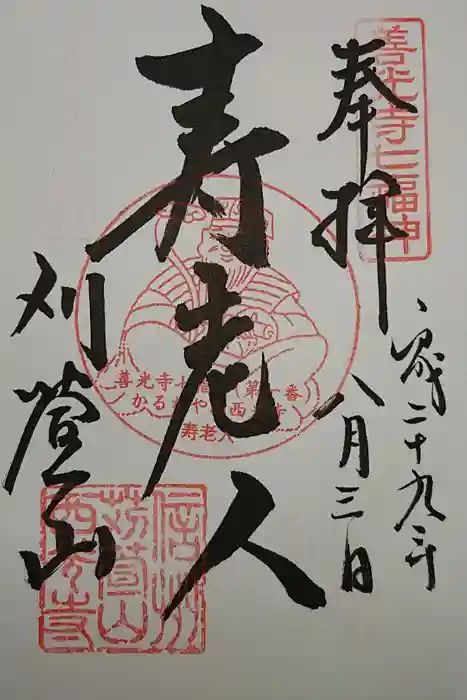 奉拝
善光寺七福神
平成二十九年
八月三日
寿老人
善光寺七福神第一番
かるかや山西光寺
寿老人
刈萱山
信州
苅萱山
西光寺